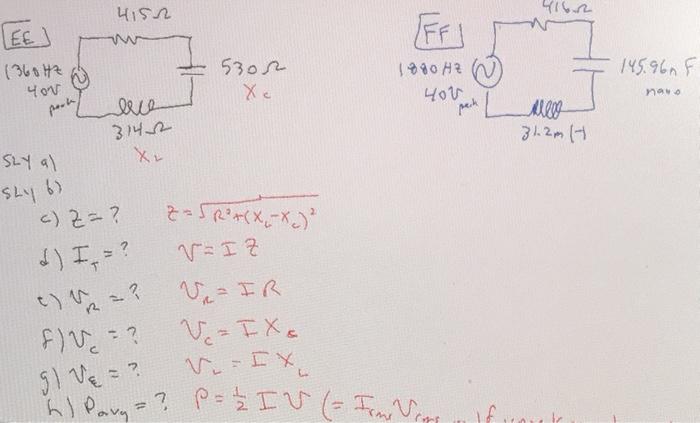 EE
415Ω
1360 Hz
40V
peak
530Ω
Xc
314Ω
XL
FF
416Ω
1880 Hz
40V
peak
145.96n F
nano
31.2m H
SLY a)
SLY b)
c) Z = ? Z = √R²+(XL-Xc)²
d) IT = ? V = I Z
e) VR = ? VR = I R
f) Vc = ? Vc = I Xc
g) VL = ? VL = I XL
h) Pavg = ? P = ½ I V (= Irms Vrms